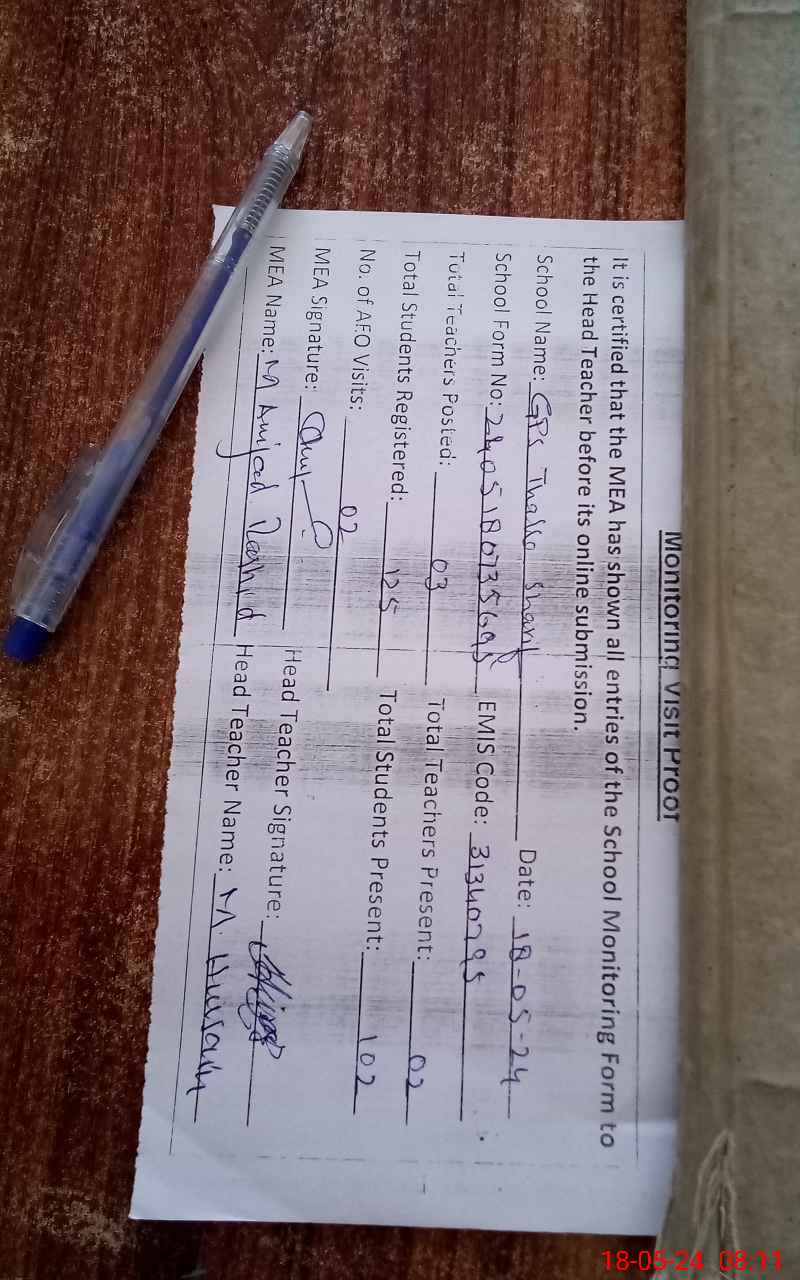 Monitoring Visit Proof
It is certified that the MEA has shown all entries of the School Monitoring Form to
the Head Teacher before its online submission.
School Name: GPS Sharif Date: 18-05-24
School Form No: EMIS Code: 31340795
Total Teachers Posted: 03 Total Teachers Present: 02
Total Students Registered: 125 Total Students Present: 102
No. of AEO Visits: 02
MEA Signature: Head Teacher Signature:
MEA Name: M Amjad Rashid Head Teacher Name: M. Hussain
18-05-24 08:11